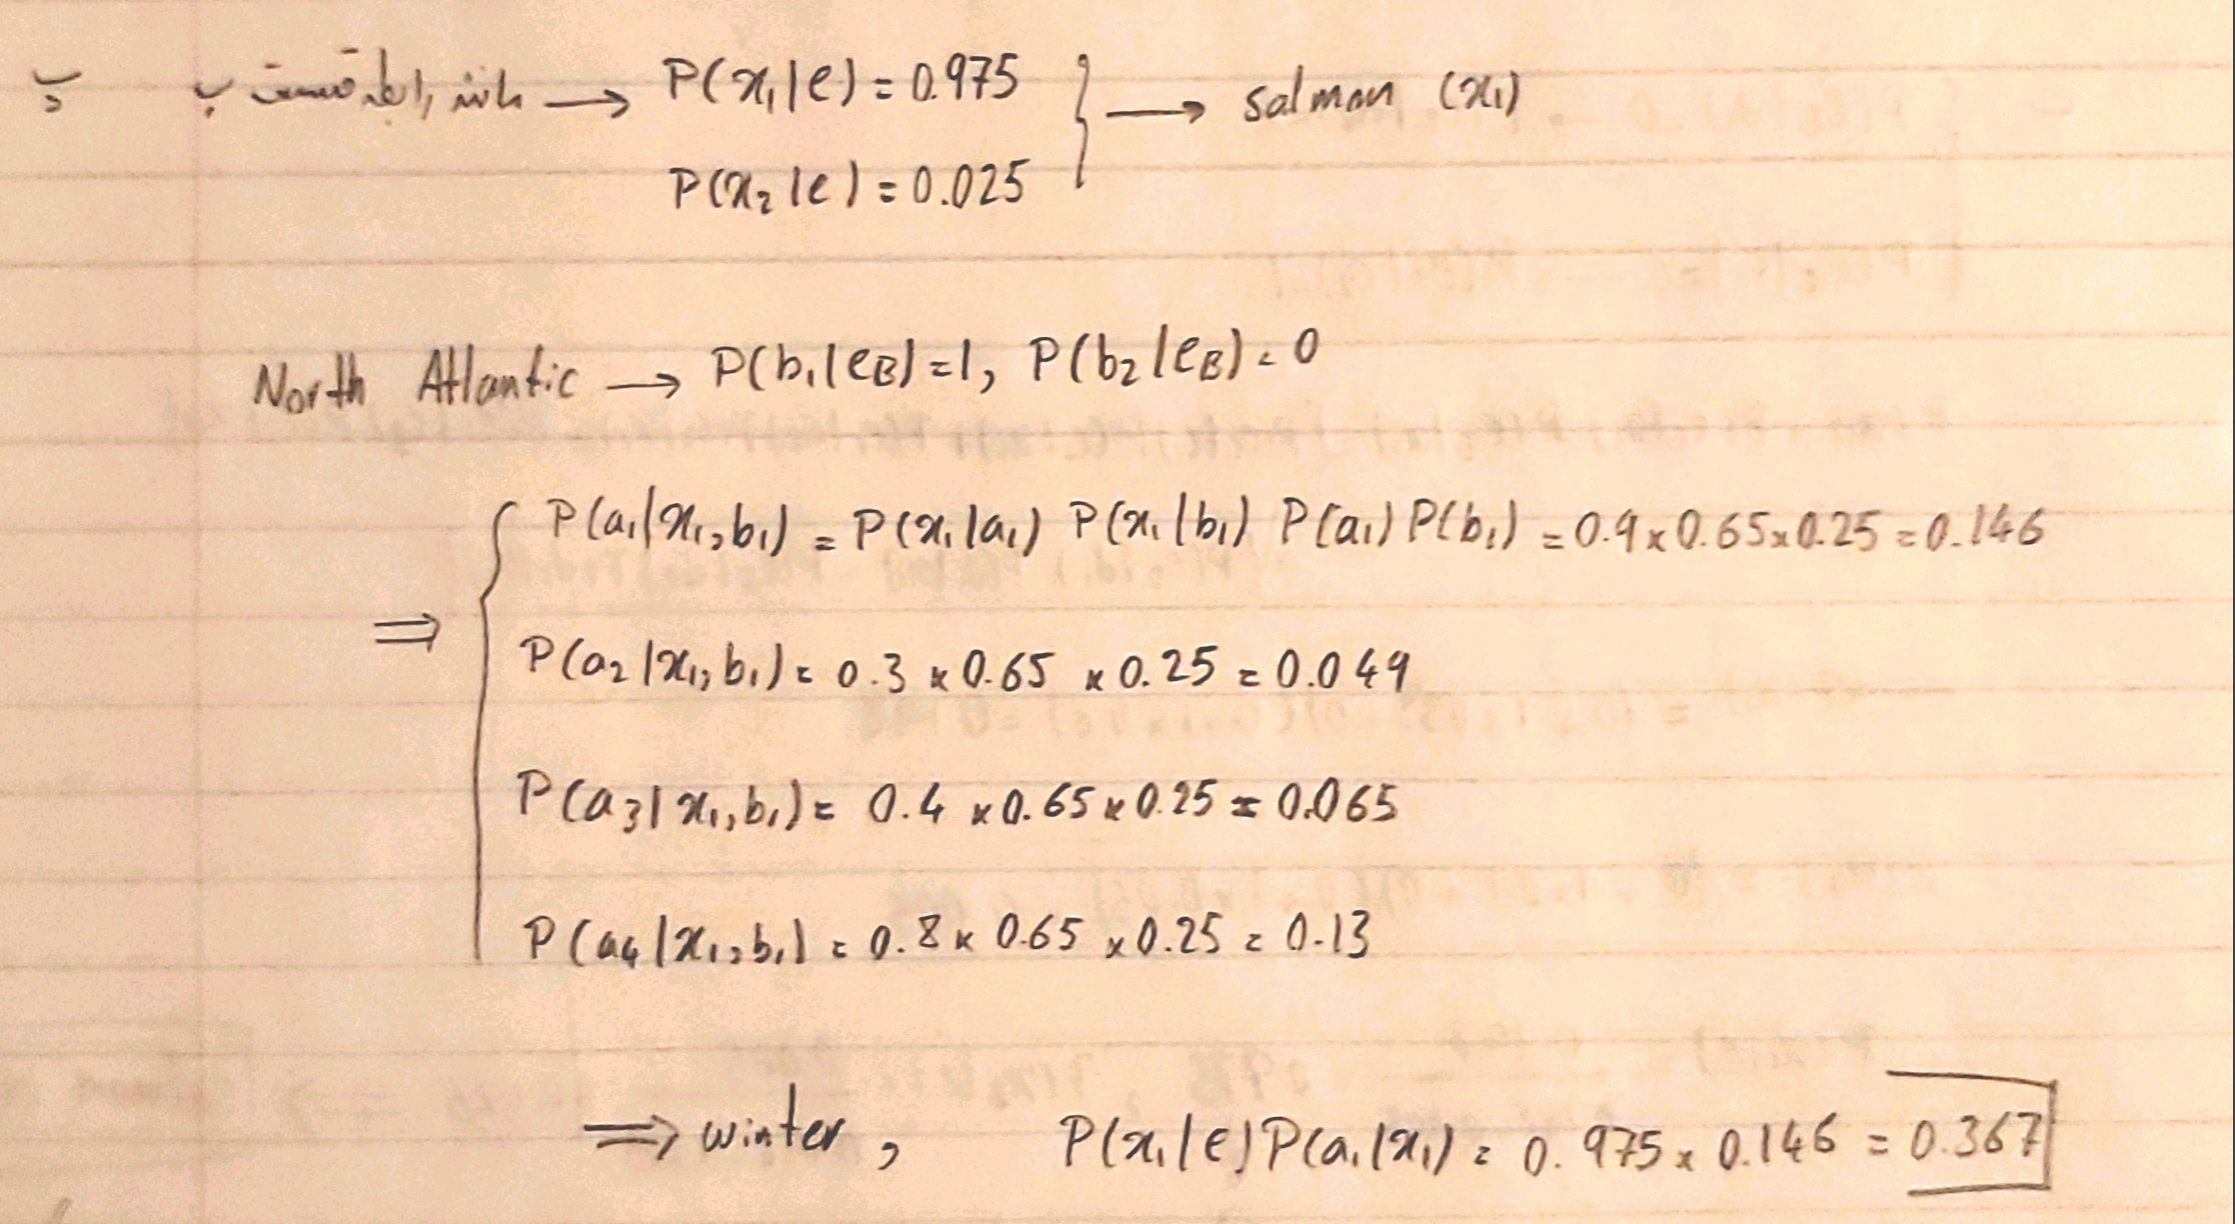 پ) مانند رابطه قسمت ب → P(x₁|e) = 0.975 } → salmon (x₁)
P(x₂|e) = 0.025
North Atlantic → P(b₁|e_B) = 1, P(b₂|e_B) = 0
⇒ { P(a₁|x₁,b₁) = P(x₁|a₁) P(x₁|b₁) P(a₁) P(b₁) = 0.9 × 0.65 × 0.25 = 0.146
P(a₂|x₁,b₁) = 0.3 × 0.65 × 0.25 = 0.049
P(a₃|x₁,b₁) = 0.4 × 0.65 × 0.25 = 0.065
P(a₄|x₁,b₁) = 0.8 × 0.65 × 0.25 = 0.13
⇒ winter , P(x₁|e) P(a₁|x₁) = 0.975 × 0.146 = 0.367